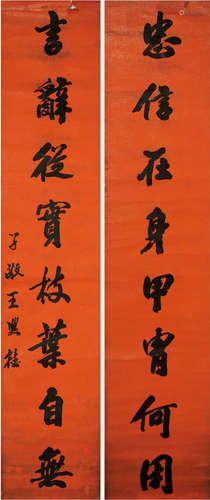 忠信在身甲胄何用
言辭從實枝葉自無
子敬王興桂